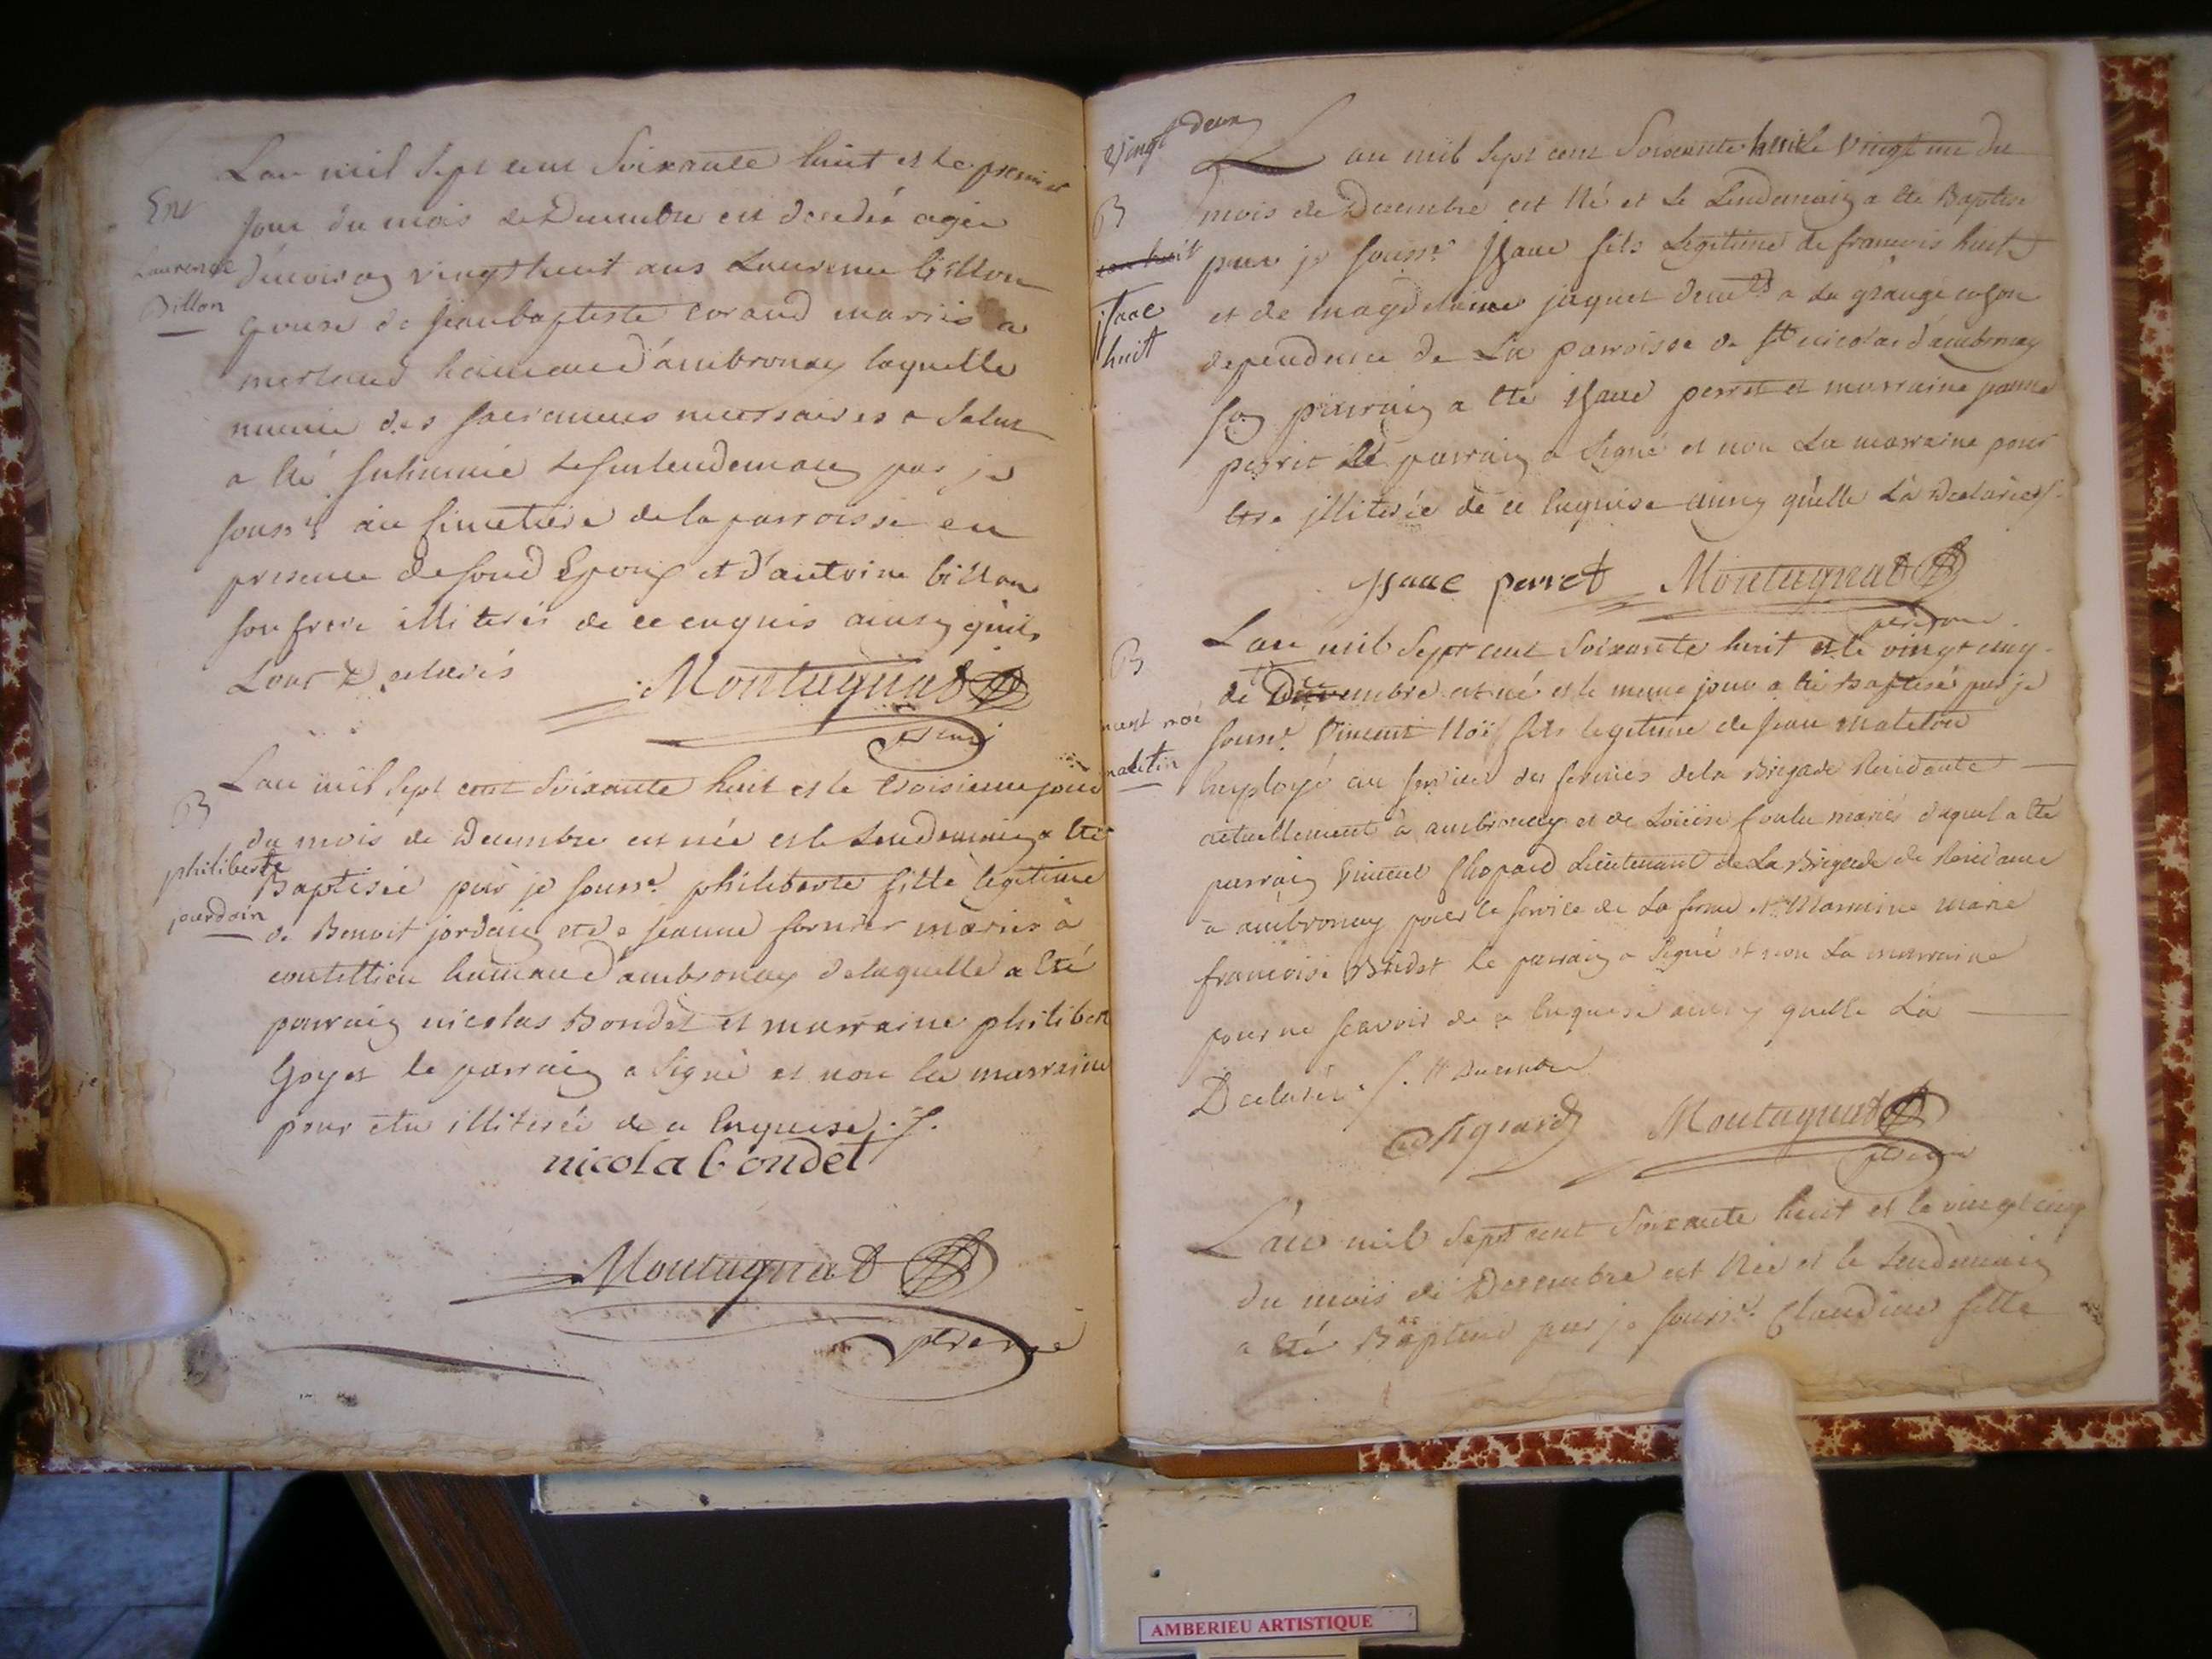 Lan mil sept cent soixante huit et le premier
Ent
jour du mois de Decembre est decedée agée
Laurence
d'environ vingt huit ans Laurence billon
Billon
epouse de jean baptiste corand mariés a
merland hameau d'ambronay laquelle
munie des sacremens necessaires a salut
a été inhumée le surlendemain par je
souss.é au simetiere de la parroisse en
presence de sond époux et d'antoine billon
son frere illiterés de ce enquis ainsy quils
l'ont declarés
Montagnat
Lan mil sept cent soixante huit et le troisieme jour
B
du mois de Decembre est née et le lendemain a été
philiberte
Baptisée par je souss.é philiberte fille legitime
jourdain
de Benoit jordain et de jeanne fornier mariés à
hameau d'ambronay delaquelle a été
parrain nicolas Bondet et marraine philibert
Goyet le parrain a signé et non la marraine
pour etre illiterée de ce enquise ./.
nicola bondet
Montagnat
vingt deux
L an mil sept cent soixante huit le vingt un du
B
mois de Decembre est Né et le Lendemain a été Baptisé
par je souss.é jsaac fils Legitime de francois huit
isaac
et de magdelaine jaquet a La grange
huit
dependence de La parroisse de St nicolas d'ambronay
son parrain a été jsaac perret et marraine janne
perrit le parrain a signé et non La marraine pour
etre illiterée de ce enquise ainsy qu'elle La Declarée ./.
jsaac perret Montagnat
Lan mil sept cent soixante huit et le vingt cinq
B
de Decembre est né et le meme jour a été Baptisé par je
noé
souss.é Vincent Noé fils legitime de jean matetin
matetin
employé au service des fermes dela Brigade Residente
actuellement à ambronay et de Loüise mariés duquel a été
parrain Vincent Chopard Lieutenant de La Brigade de Residance
à ambronay pour le service de La ferme et Marraine marie
francoise Bridet le parrain a signé et non La marraine
pour ne scavoir de ce enquise ainsy quelle La
Declarée ./. Decembre
Montagnat
L'an mil sept cent soixante huit et le vingt cinq
du mois de Decembre est Née et le lendemain
a été Baptisée par je souss.é Claudine fille
AMBERIEU ARTISTIQUE